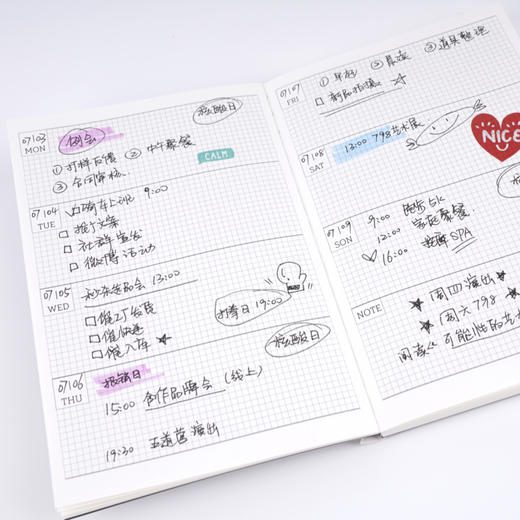 07/03
MON
例会
核酸日
① 打样反馈 ② 中午聚餐
③ 合同审核
CALM
07/04
TUE
骑车上班 9:00
推广文案
社群宣发
微博活动
07/05
WED
13:00
催工厂发货
催快递
催入库
打卷日 19:00
核酸日
07/06
THU
报销日
15:00 合作品牌会 (线上)
19:30 五道营演出
07/07
FRI
① 早好 ② ③ 道具整理
新品拍摄
07/08
SAT
13:00 798艺术展
NICE
07/09
SON
9:00 跑步5k
12:00 家庭聚餐
16:00 SPA
NOTE
周四演出
周六798
阅读《可能性的艺术